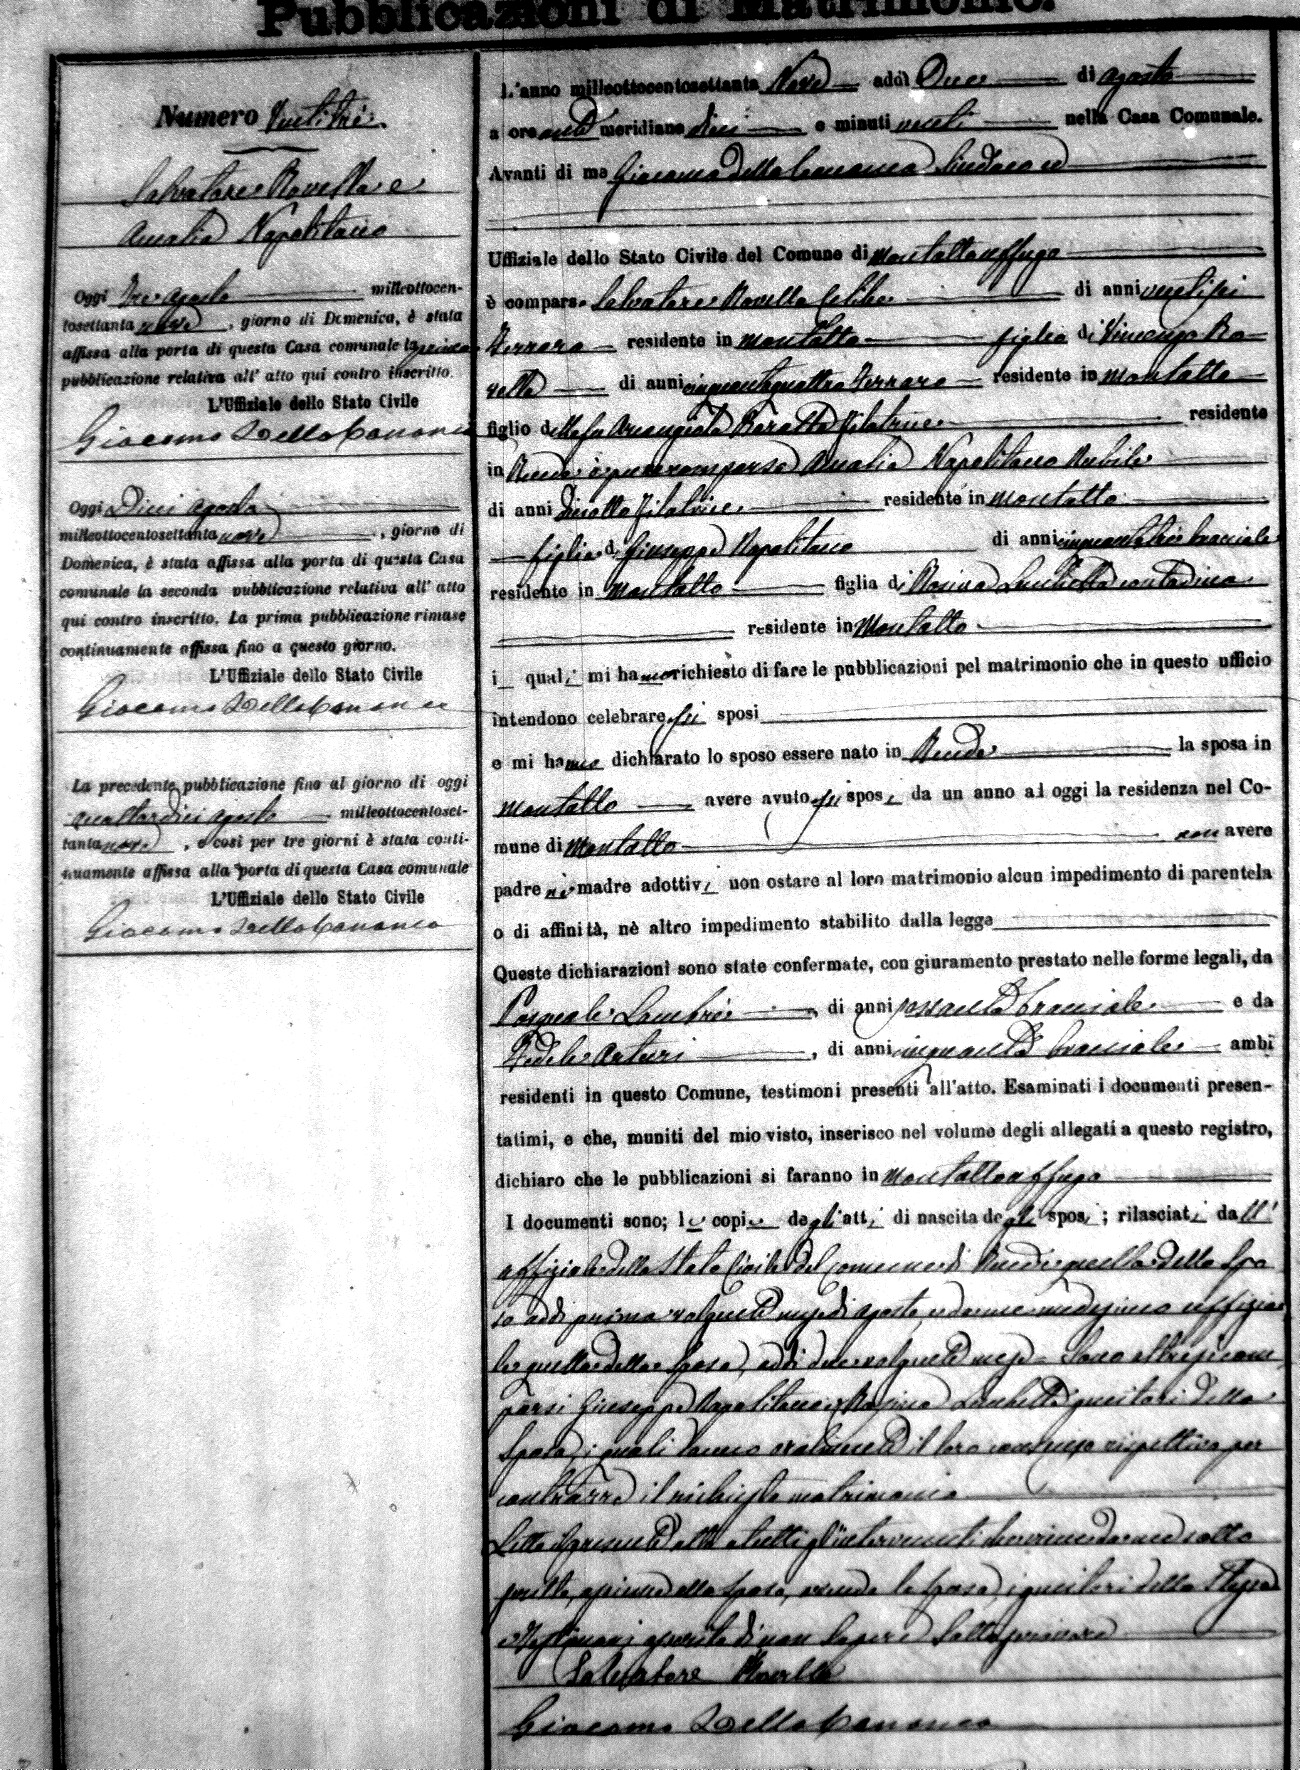 Pubblicazioni di Matrimonio.
Numero Ventitre.
Salvatore Rovella e
Amalia Napolitano
Oggi tre agosto milleottocen-
tosettanta nove, giorno di Domenica, è stata
affissa alla porta di questa Casa comunale la prima
pubblicazione relativa all' atto qui contro inscritto.
L'Uffiziale dello Stato Civile
Giacomo Della Cananea
Oggi Dieci agosto
milleottocentosettanta nove, giorno di
Domenica, è stata affissa alla porta di questa Casa
comunale la seconda pubblicazione relativa all' atto
qui contro inscritto. La prima pubblicazione rimase
continuamente affissa fino a questo giorno.
L'Uffiziale dello Stato Civile
Giacomo Della Cananea
La precedente pubblicazione fino al giorno di oggi
quattordici agosto milleottocentoset-
tanta nove, e così per tre giorni è stata conti-
nuamente affissa alla porta di questa Casa comunale
L'Uffiziale dello Stato Civile
Giacomo Della Cananea
L'anno milleottocentosettanta Nove addì Due di agosto
a ore anti meridiane dieci e minuti venti nella Casa Comunale.
Avanti di me Giacomo della Cananea Sindaco ed
Uffiziale dello Stato Civile del Comune di Montalto uffugo
è comparso Salvatore Rovella Celibe di anni ventisei
Ferraro residente in Montalto figlio di Vincenzo Ro-
vella di anni cinquantaquattro Ferraro residente in Montalto
figlio della fu Arcangiola Baratta Filatrice residente
in Rende è pure comparsa Amalia Napolitano Nubile
di anni dieciotto Filatrice residente in Montalto
figlia di Giuseppe Napolitano di anni cinquantatre bracciale
residente in Montalto figlia di Rosina Luchetta contadina
residente in Montalto
i quali mi hanno richiesto di fare le pubblicazioni pel matrimonio che in questo ufficio
intendono celebrare essi sposi
e mi hanno dichiarato lo sposo essere nato in Rende la sposa in
Montalto avere avuto essi sposi da un anno ad oggi la residenza nel Co-
mune di Montalto non avere
padre nè madre adottivi non ostare al loro matrimonio alcun impedimento di parentela
o di affinità, nè altro impedimento stabilito dalla legge
Queste dichiarazioni sono state confermate, con giuramento prestato nelle forme legali, da
Pasquale di anni sessanta bracciale e da
Fedele Arturi, di anni cinquanta bracciale ambi
residenti in questo Comune, testimoni presenti all'atto. Esaminati i documenti presen-
tatimi, e che, muniti del mio visto, inserisco nel volume degli allegati a questo registro,
dichiaro che le pubblicazioni si faranno in Montalto uffugo
I documenti sono; le copie degli atti di nascita degli sposi; rilasciati dall'
uffiziale dello Stato Civile del Comune di Rende quella dello Spo
so addì primo volgente mese di agosto, e da me medesimo uffizia
le quella della Sposa, addì due volgente mese - Sono altresì com
parsi Giuseppe Napolitano e Rosina Luchetta genitori della
Sposa, i quali hanno il loro consenso rispettivo per
contrarre il richiesto matrimonio
Letto il presente atto a tutti gl'intervenuti da me sotto
allo sposo, la sposa, i genitori della stessa
e testimoni asserito di non sapere sottoscrivere
Salvatore Rovella
Giacomo Della Cananea